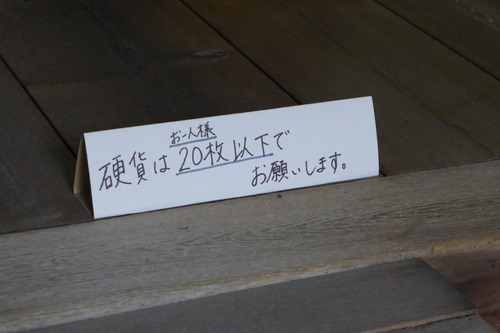 お一人様
硬貨は20枚以下で
お願いします。